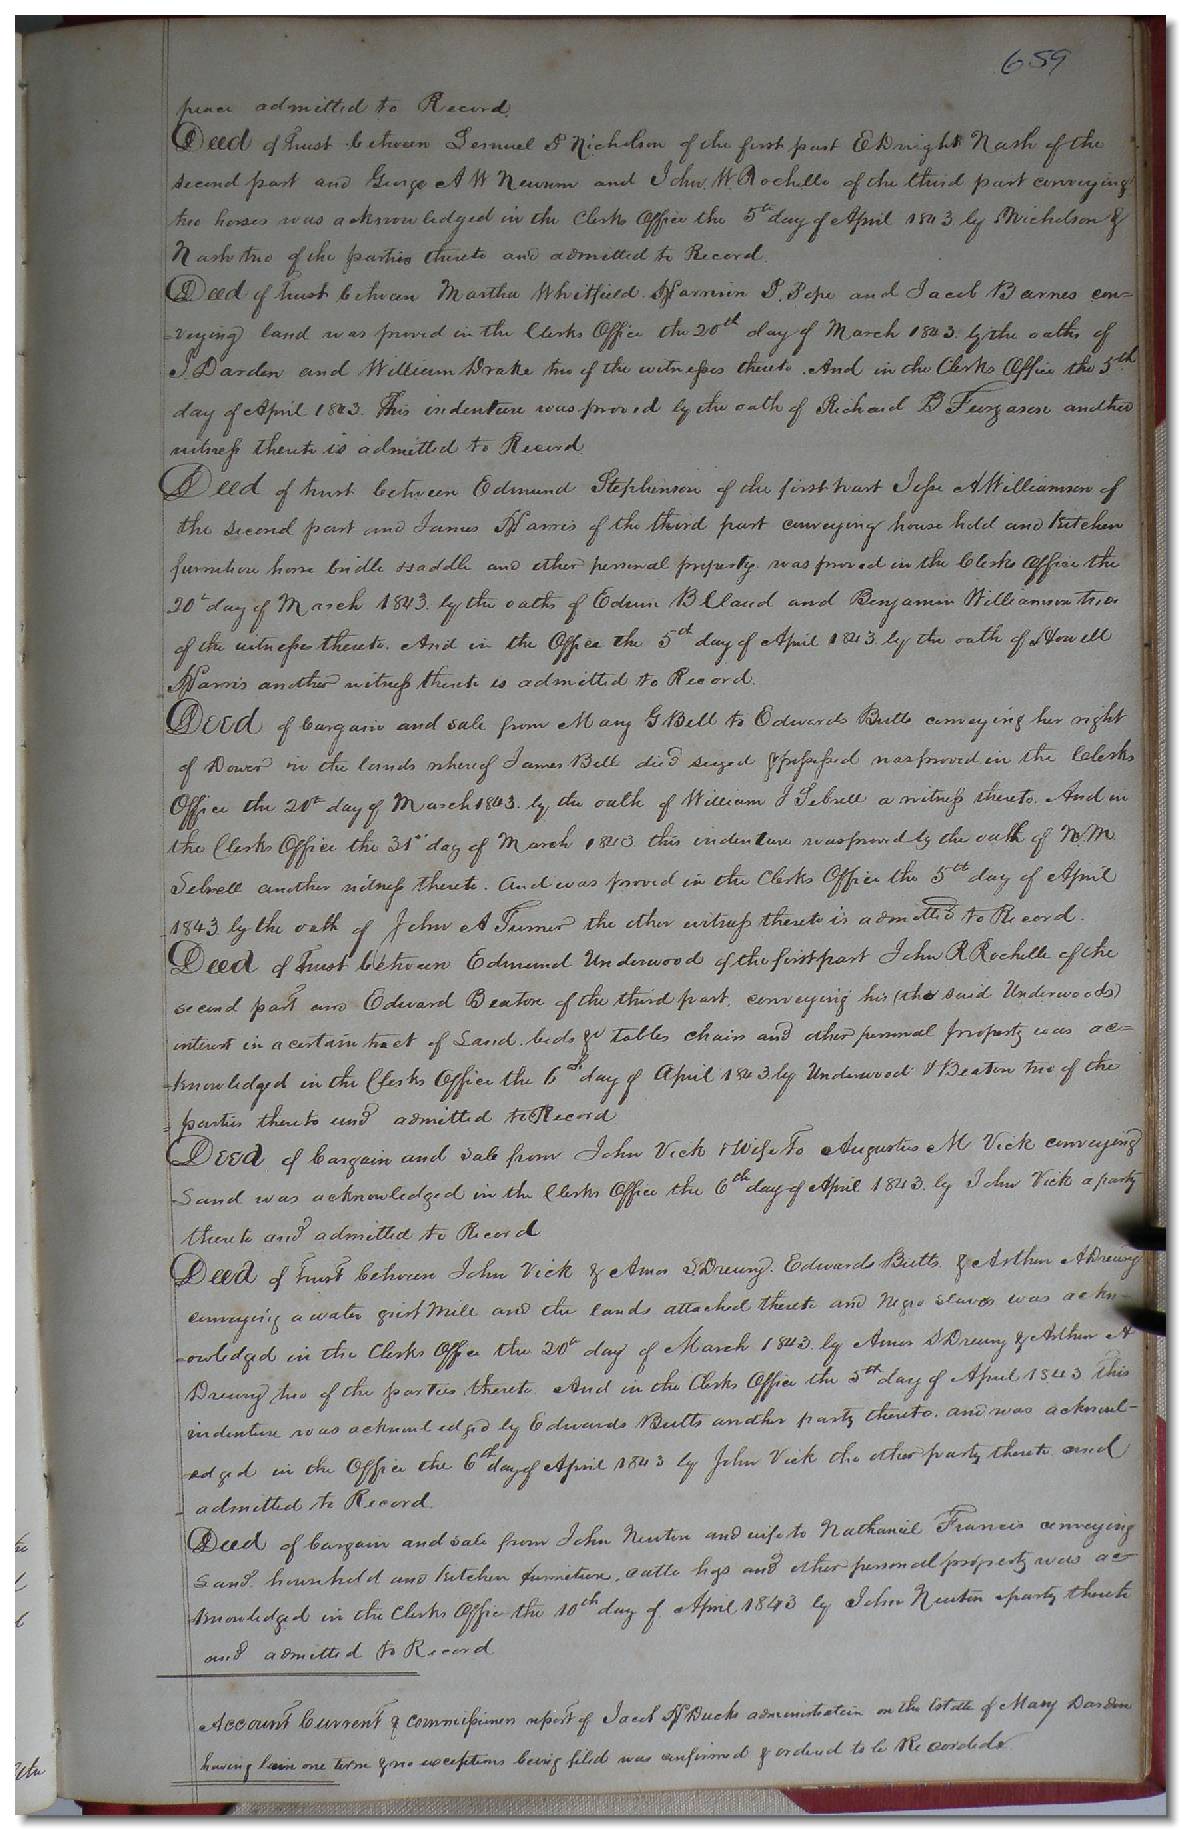 659
peace admitted to Record
Deed of trust between Lemuel P Nicholson of the first part E Dwight Nash of the
second part and George A W Newsum and John W Rochelle of the third part conveying
two horses was acknowledged in the Clerks Office the 5th day of April 1843 by Nicholson &
Nash two of the parties thereto and admitted to Record.
Deed of trust between Martha Whitfield Harrison P. Pope and Jacob Barnes con=
=veying land was proved in the Clerks Office the 20th day of March 1843. by the oaths of
J. Darden and William Drake two of the witnesses thereto. And in the Clerks Office the 5th
day of April 1843. This indenture was proved by the oath of Richard B Furgason another
witness thereto is admitted to Record
Deed of trust between Edmund Stephenson of the first part Jesse A Williamson of
the second part and James Harris of the third part conveying house hold and Kitchen
furniture horse bridle saddle and other personal property. was proved in the Clerks Office the
20th day of March 1843. by the oaths of Edwin B Claud and Benjamin Williamson two
of the witnesses thereto. And in the Office the 5th day of April 1843. by the oath of Howell
Harris another witness thereto is admitted to Record.
Deed of bargain and sale from Mary G Bell to Edwards Butts conveying her right
of Dower in the lands whereof James Bell died seized & possessed was proved in the Clerks
Office the 20th day of March 1843. by the oath of William J Sebrell a witness thereto. And in
the Clerks Office the 31st day of March 1843 this indenture was proved by the oath of N. M.
Sebrell another witness thereto. and was proved in the Clerks Office the 5th day of April
1843 by the oath of John A Turner the other witness thereto is admitted to Record.
Deed of trust between Edmund Underwood of the first part John R Rochelle of the
second part and Edward Beaton of the third part. conveying his (the said Underwoods)
interest in a certain tract of Land. beds &c tables chairs and other personal property was ac=
=knowledged in the Clerks Office the 6th day of April 1843 by Underwood & Beaton two of the
parties thereto and admitted to Record
Deed of bargain and sale from John Vick & Wife To Augustus M Vick conveying
Land was acknowledged in the Clerks Office the 6th day of April 1843. by John Vick a party
thereto and admitted to Record
Deed of trust between John Vick & Amos S Drewry. Edwards Butts. & Arthur A Drewry
conveying a water grist Mill and the lands attached thereto and Negro slaves was ackn-
-owledged in the Clerks Office the 20th day of March 1843 by Amos S Drewry & Arthur A
Drewry two of the parties thereto. And in the Clerks Office the 5th day of April 1843 this
indenture was acknowledged by Edwards Butts another party thereto. and was acknowl-
edged in the Office the 6th day of April 1843 by John Vick the other party thereto and
admitted to Record.
Deed of bargain and sale from John Newton and wife to Nathaniel Francis conveying
Land. household and Kitchen furniture. cattle hogs and other personal property was ac-
knowledged in the Clerks Office the 10th day of April 1843 by John Newton a party thereto
and admitted to Record
Account Current & commissioners report of Jacob H Duck administration on the Estate of Mary Darden
having lain one term & no exceptions being filed was confirmed & ordered to be Recorded